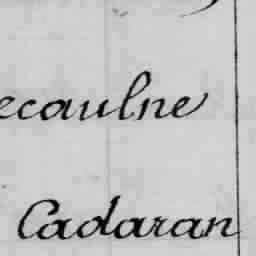 ecaulne
Cadaran